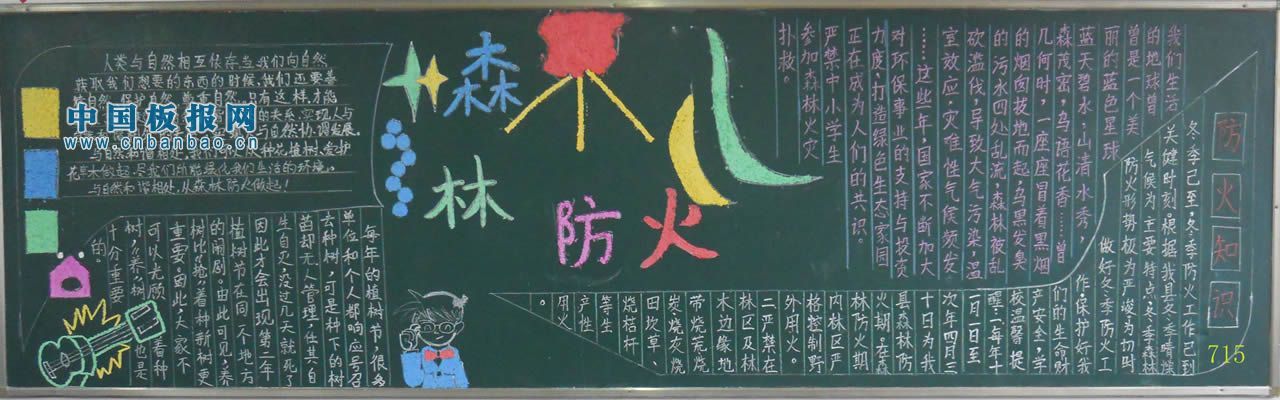 人类与自然相互依存当我们向自然
获取我们想要的东西的时候,我们还要善
的关系,实现人与
与自然协调发展。
与自然和谐相处,从森林防火做起!
中国板报网
www.cnbanbao.cn
每年的植树节,很多
单位和个人都响应号召
去种树,可是种下的树
苗却无人管理,任其自
生自灭,没过几天就死了
因此才会出现第二年
植树节在同一个地方
的闹剧。由此可见,养
树比"抢"着种新树更
重要。因此,大家不
可以光顾着种
树,养树也是
十分重要
的。
森
林
防火
我们生活
的地球曾
曾是一个美
丽的蓝色星球
蓝天碧水,山清水秀,
森林茂密,鸟语花香……曾
几何时,一座座冒着黑烟
的烟囱拔地而起,乌黑发臭
的污水四处乱流,森林被乱
砍滥伐,导致大气污染,温
室效应,灾难性气候频发
……这些年,国家不断加大
对环保事业的支持与投资
力度,打造绿色生态家园
正在成为人们的共识。
严禁中小学生
参加森林火灾
扑救。
防火知识
冬季已至,冬季防火工作已到
关键时刻。根据我县冬季晴燥
气候为主要特点,冬季森林
防火形势极为严峻为切时
做好冬季防火工
作保护好我
们的生命财
产安全,学
校温馨提
醒:一每年十
一月一日至
次年四月三
十日为我
县森林防
火期,在森
林防火期
内林区严
格控制野
外用火。
二严禁在
林区及林
木边缘地
带烧荒烧
炭烧灰烧
田坎草
烧秸杆
等生
产性
用火
。
715